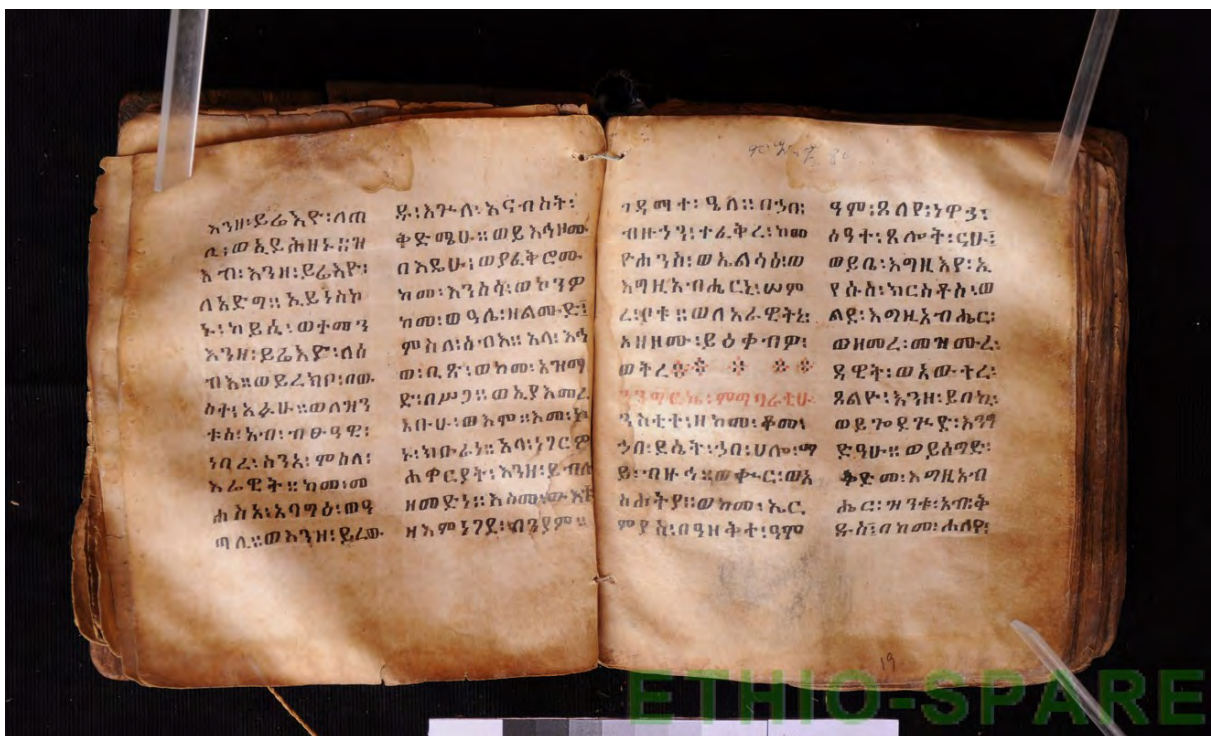 እንዘ፡ይሬእዮ፡ለጠ
ሊ፡ወኢይሕዘኑ፡
እብ፡እንዘ፡ይሬእዮ፡
ለአድግ። ኢይነስኩ
ኑ፡ከይሲ፡ወተመን
እንዘ፡ይሬእዮ፡ለሰ
ብእ።ወይረክቦ፡በው
ስተ፡አራዊ።ወለዝን
ቱሰ፡አብ፡ብፁዓዊ፡
ነበረ፡ስንአ፡ምስለ፡
አራዊት።ከመ፡መ
ሐስአ፡አባግዕ፡ወዓ
ጣሊ።ወእንዘ፡ይረው
ዱ፡እጕለ፡አናብስት፡
ቅድሜሁ።ወይእኅዘሙ
በእዴሁ፡ወያፈቅሮሙ
ከመ፡እንስሳ፡ወኮንዎ
ከመ፡ወዓሊ፡ዘልሙድ፤
ምስለ፡ሰብእ። አላ፡አኅ
ው፡ቢጽ፡ወከመ፡አዝማ
ድ፡በሥጋ። ወኢያእመረ
አቡሁ፡ወእሞ።እመ፡ኮ
ኑ፡ክቡራነ። አላ፡ነገርዎ
ሐዋርያት፡እንዘ፡ይብሉ
ዘመድነ።እስመ፡ውእቱ
ዘእምነገደ፡ብንያም።
ገዳማተ፡ዔለ።በኀበ፡
ብዙኃን፡ተፈቅረ፡ከመ
ዮሐንስ፡ወኤልሳዕ፡ወ
እግዚአብሔርኒ፡ሠም
ረ፡ቦቱ።ወለአራዊትኒ፡
አዘዞሙ፡ይዕቀብዎ፡
ወትረ
ንንግርኬ፡ምግባራቲሁ
ንስቲተ፡ዘከመ፡ቆመ፡
ኃበ፡ደሴት፡ኃበ፡ሀሎ፡ማ
ይ፡ብዙኅ።ወቍር፡ወአ
ስሐትያ።ወከመ፡ኤር
ምያስ፡በዓዘቅተ፡ዓም
ዓም፡ጸለየ፡ነዋኃ፡
ሰዓተ፡ጸሎት፡ርሁ፤
ወይቤ፡እግዚእየ፡ኢ
የሱስ፡ክርስቶስ፡ወ
ልደ፡እግዚአብሔር፡
ወዘመረ፡መዝሙረ፡
ዳዊት፡ወአውተረ፡
ጸልዮ፡እንዘ፡ይበኪ፡
ወይጐደጕድ፡እንግ
ድዓሁ። ወይሰግድ፡
ቅድመ፡እግዚአብ
ሔር፡ዝንቱ፡አብ፡ቅ
ዱስ፤በከመ፡ሐለየ፡
19
ETHIO-SPARE